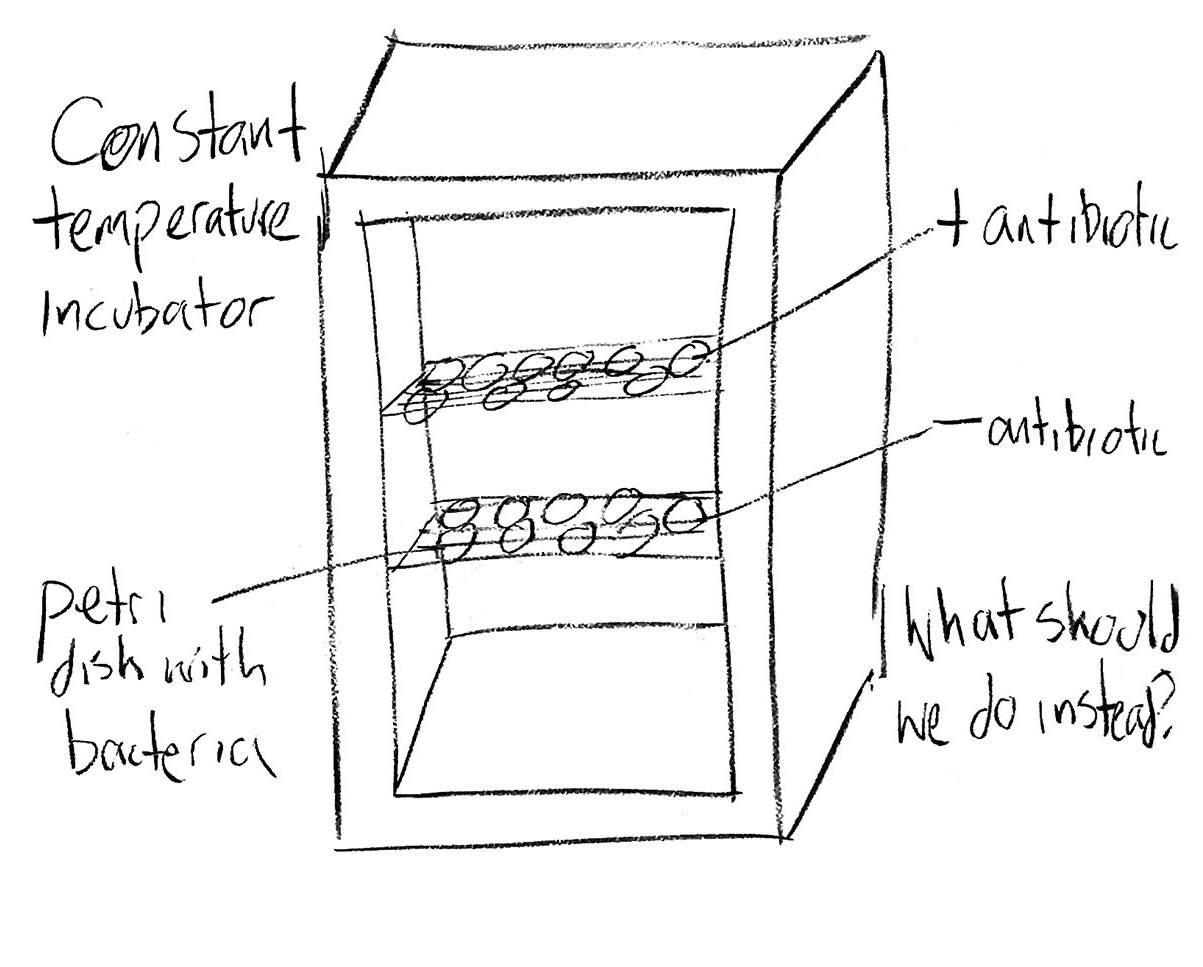 Constant
temperature
incubator
+ antibiotic
- antibiotic
petri
dish with
bacteria
What should
we do instead?